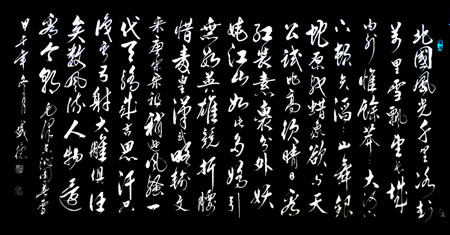 北國風光千里冰封
万里雪飄望長城
内外惟餘莽莽大河上
下頓失滔滔山舞銀
蛇原馳蜡象欲与天
公試比高須晴日看
紅裝素裹分外妖
嬈江山如此多嬌引
無數英雄競折腰
惜秦皇漢武略輸文
采唐宗宋祖稍遜風騷一
代天驕成吉思汗只
識弯弓射大雕俱往
矣數風流人物還
看今朝 毛澤東沁園春雪
年冬月